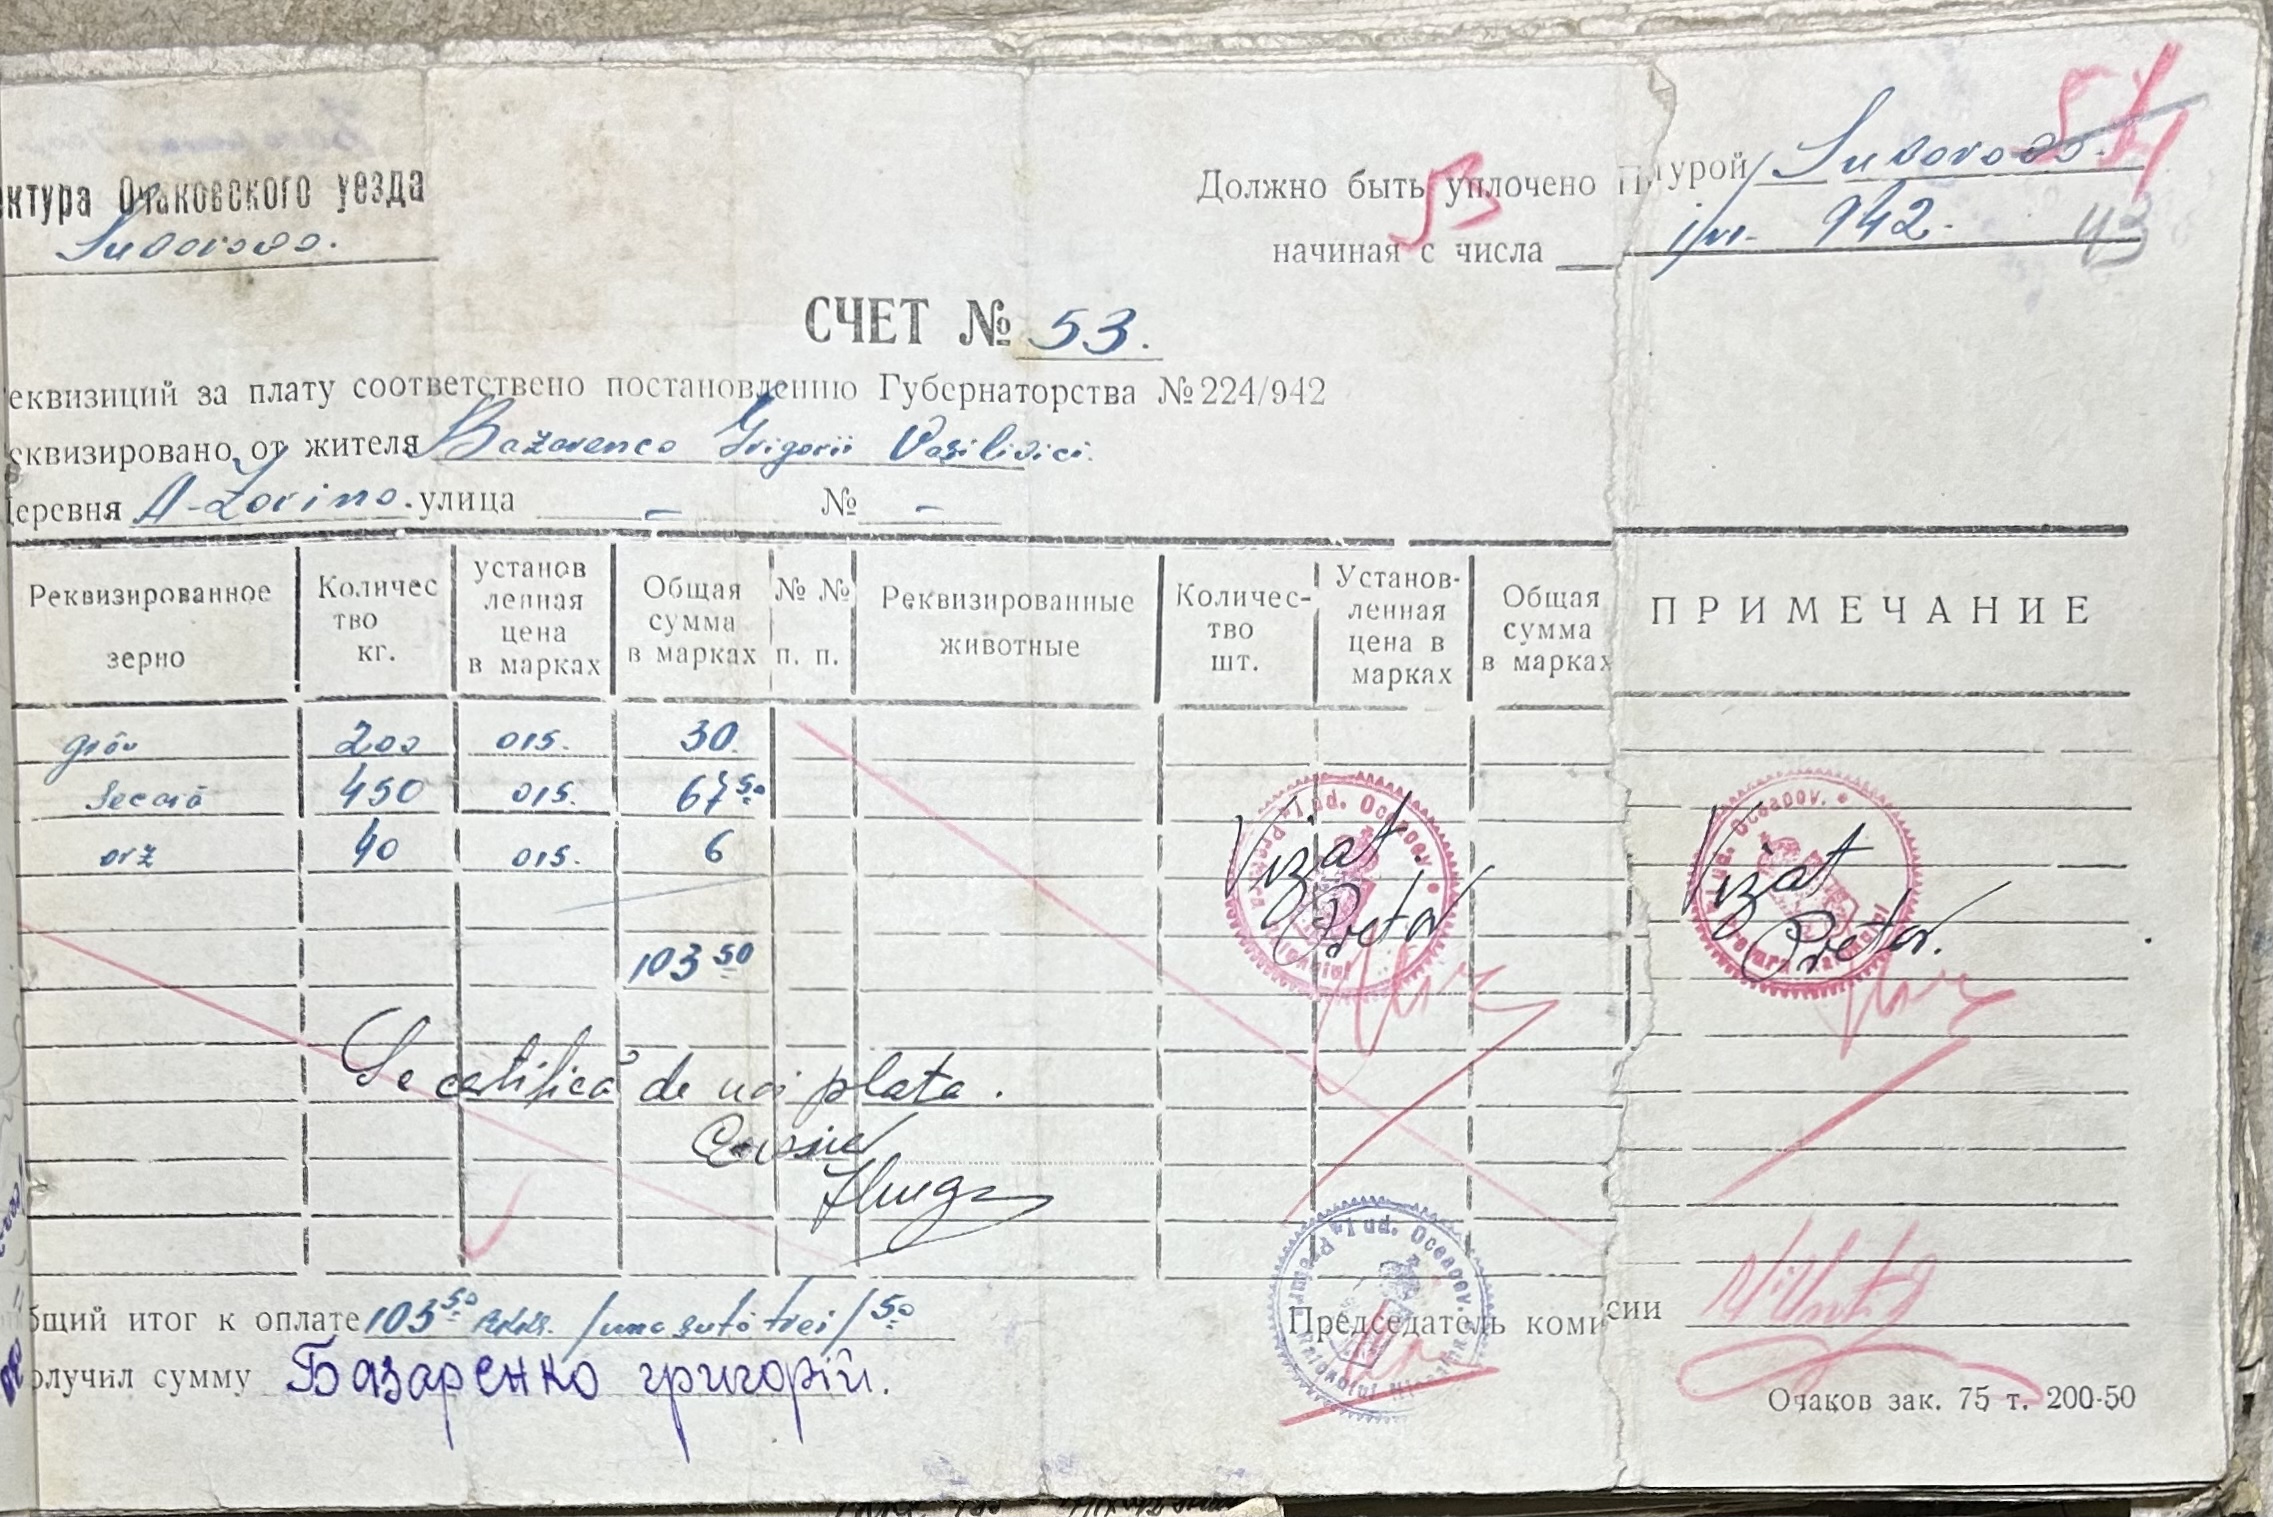 ктура Очаковского уезда
Suvorovo.
Должно быть уплочено П турой Suvorovo.
начиная с числа 942.
54
53
43
СЧЕТ № 53.
еквизиций за плату соответствено постановлению Губернаторства № 224/942
еквизировано от жителя Bazarenco Grigorii Vasilivici.
Деревня улица - № -
Реквизированное зерно
Количес тво кг.
установ ленная цена в марках
Общая сумма в марках
№ № п. п.
Реквизированные животные
Количес- тво шт.
Установ- ленная цена в марках
Общая сумма в марках
ПРИМЕЧАНИЕ
grâu 200 015. 30
secară 450 015. 67 50
orz 40 015. 6
103 50
Vizat
Pretor
Vizat
Pretor.
Se certifică de noi plata.
Jud. Oceacov.
Jud. Oceacov.
Jud. Oceacov.
бщий итог к оплате 103 50 /una sută trei/ 50
Председатель комиссии
олучил сумму Базаренко григорій.
Очаков зак. 75 т. 200-50